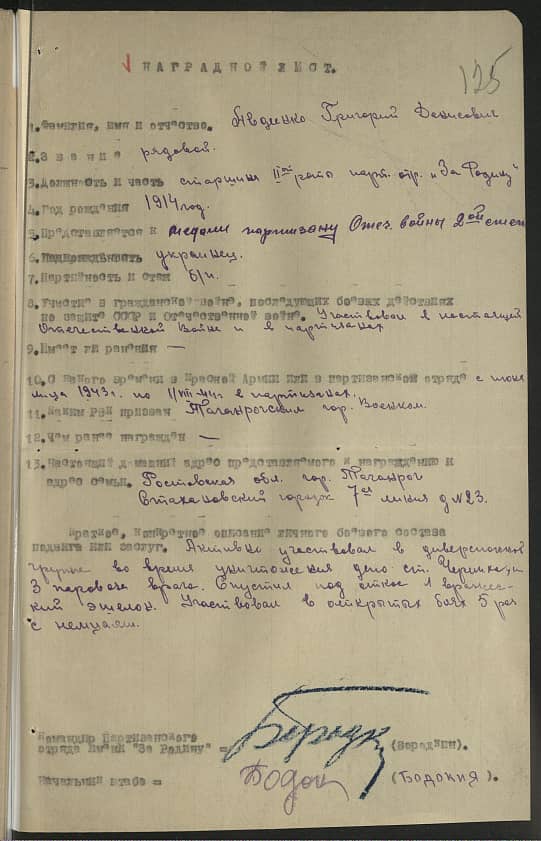 НАГРАДНОЙ ЛИСТ.
125
1. Фамилия, имя и отчество. Авдиенко Григорий Денисович
2. Звание рядовой.
3. Должность и часть старшина II ой роты парт. отр. "За Родину"
4. Год рождения 1914 год.
5. Представляется к медали партизану Отеч. войны 2 ой степ
6. украинец.
7. Партийность и стаж б/п.
8. Участие в гражданской войне, последующих боевых действиях
по защите СССР и Отечественной войне. Участвовал в настоящей
Отечественной войне и в партизанах
9. Имеет ли ранения —
10. С какого времени в Красной Армии или в партизанской отряде с июня
месяца 1943 г. по 1/VII-44 г. в партизанах.
11. Каким РВК призван Таганрогским гор. Военком.
12. Чем ранее награжден —
13. Настоящий домашний адрес представляемого к награждению и
адрес семьи. Ростовская обл. гор. Таганрог
Стахановский городок 7 ая линия д №23.
Краткое, конкретное описание личного боевого состава
подвига или заслуг. Активно участвовал в диверсионной
группе во время уничтожения депо ст.
3 паровоза врага. Спустил под откос 1 вражес-
кий эшелон. Участвовал в открытых боях 5 раз
с немцами.
Командир Партизанского
отряда имени "За Родину" = (Бородкин).
Начальник штаба = (Бодокия).